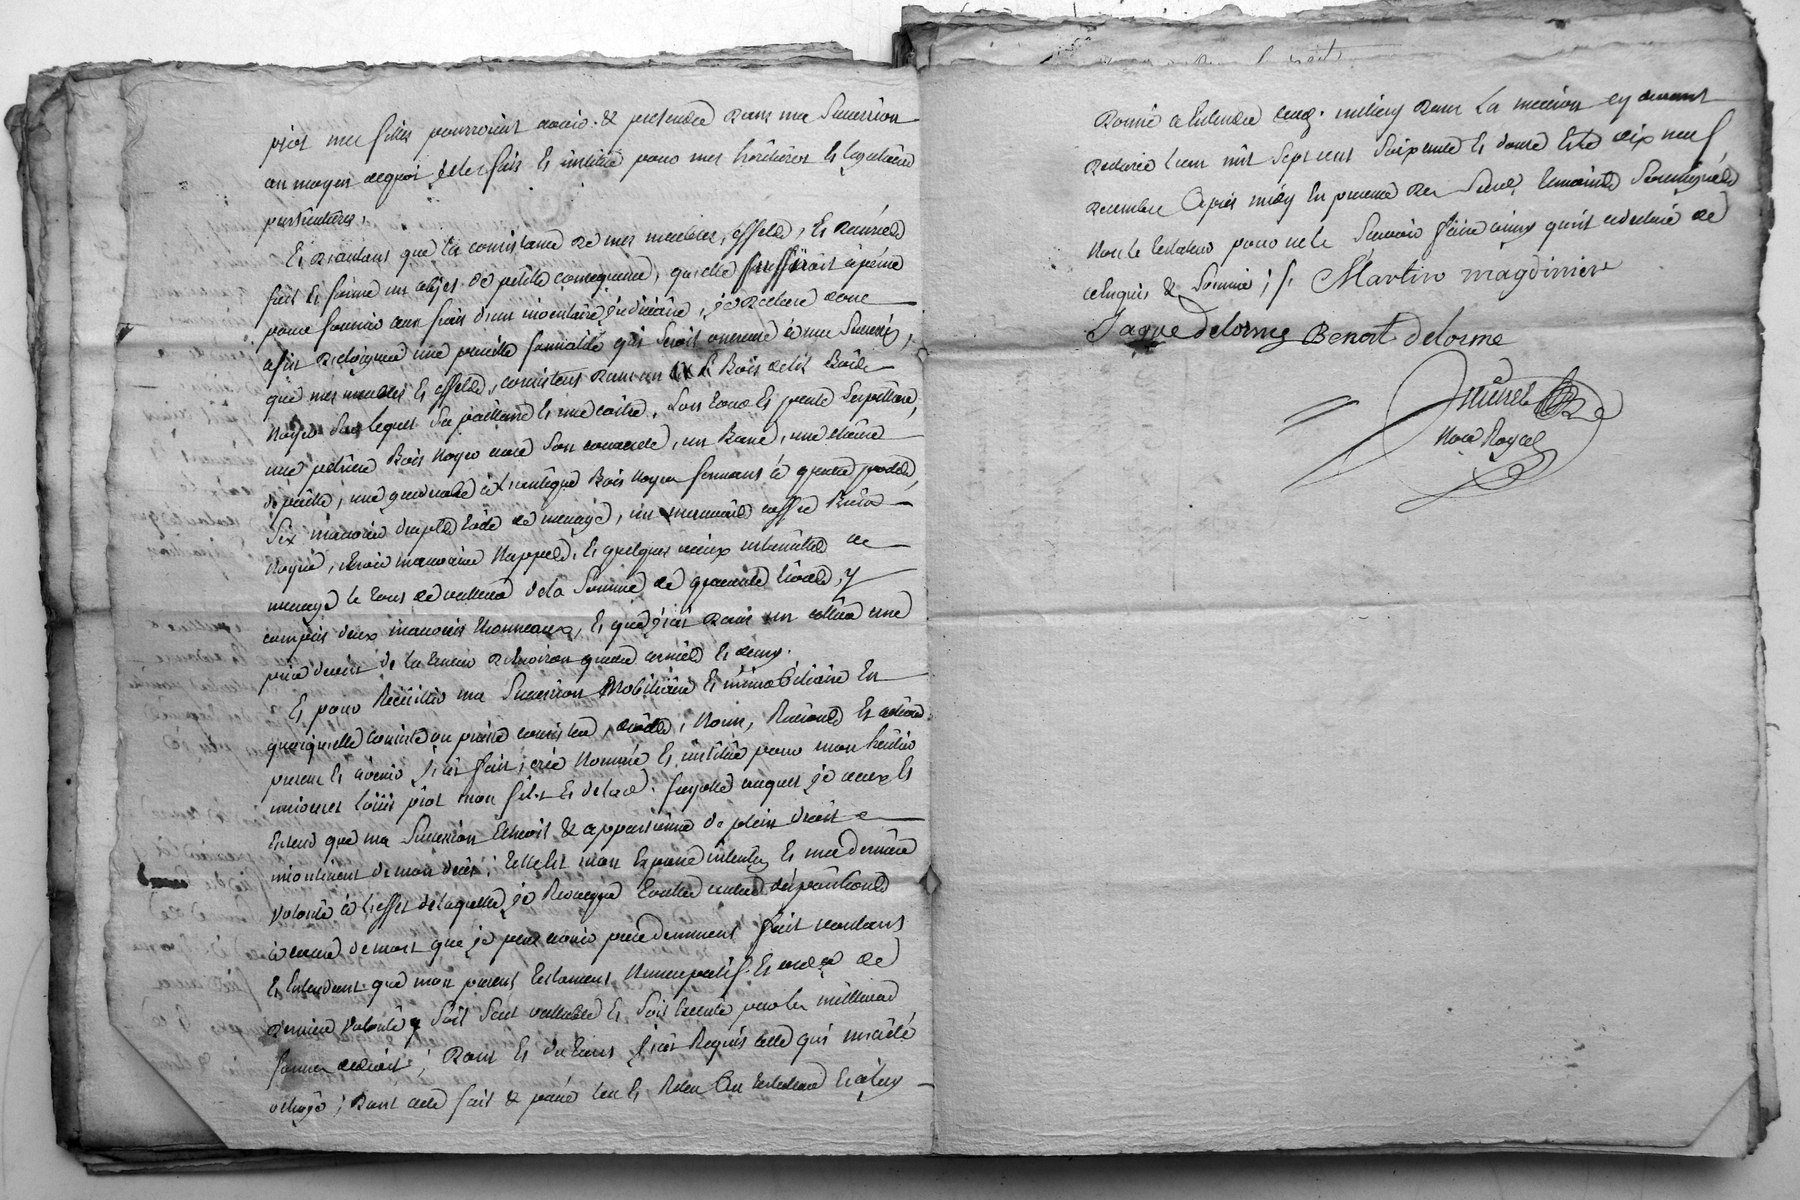 piot mes filles pourroient avoir & pretendre dans ma Succession
au moyen dequoi je les fais & institue pour mes héritières & légataires
particulieres,
Et d'autans que la consistance de mes meubles, effets, & danrées
fait & forme un objet de petite consequence, qu'elle suffiroit à peine
pour fournir aux frais d'un inventaire judiciaire, je declare donc
afin d'eloigner une pareille formalité qui seroit onereuse à ma Succession,
que mes meubles & effets, consistent dans un Bois de lit Bois
Noyer sur lequel sa paillasse & une coitre, son tour & pente
une petriere Bois Noyer avec son couvercle, un Banc, une chaise
de paille, une garderobe à l'antique Bois Noyer fermant à quatre portes,
Six draps toile de menage, un mauvais coffre Bois
Noyer, trois mauvaises Nappes, & quelques vieux ustensilles de
menage le tout de valleur de la Somme de quarante livres, y
compris deux mauvais tonneaux, & que j'ai dans un cellier une
piece de vin de la tenue d'environ quatre & demy.
Et pour Recüillir ma Succession Mobiliaire & immobiliaire En
quoiqu'elle consiste ou puisse consister, droits, Noms, Raisons & actions
presens & avenir j'ai fait, créé Nommé & institué pour mon heritier
universel Loüis piot mon fils & de lad. fayolle auquel je veux &
Entend que ma Succession Echeoit & appartienne de plein droit
incontinent de mon decès; telle est mon Expresse intention & ma derniere
Volonté à l'effet de laquelle je Revoque toutes autres dispositions
à cause de mort que je peux avoir precedemment fait voulant
& Entendant que mon present testament Nuncupatif & ordre de
derniere volonté soit seul vallable & soit Executé par les meilleures
formes de droit; Dont & du tout j'ai Requis acte qui m'a été
octroyé; Dont acte fait & passé leu & Releu au testateur & à luy
Donné à Entendre aud. millery dans la maison cy devant
declarée l'an mil Sept cent Soixante & douze & le dix neuf
decembre après midy En presence des Srs temoins Soussignés
Non le testateur pour ne le Sçavoir faire ainsy qu'il a declaré de
ce Enquis & Sommé; /. Martin magdiniere
Jaque delorme Benoit delorme
Nore Royal